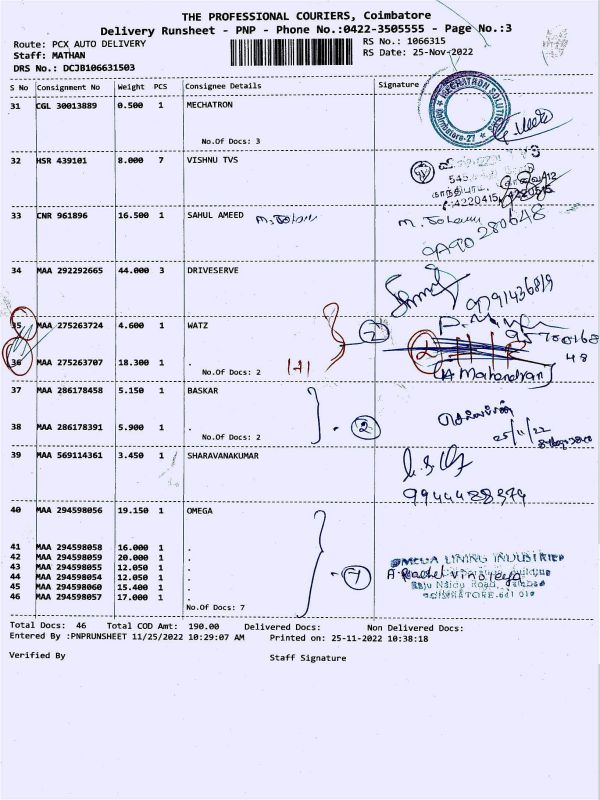 THE PROFESSIONAL COURIERS, Coimbatore
Delivery Runsheet - PNP - Phone No.:0422-3505555 - Page No.:3
Route: PCX AUTO DELIVERY RS No.: 1066315
Staff: MATHAN RS Date: 25-Nov-2022
DRS No.: DCJB106631503
S No Consignment No Weight PCS Consignee Details Signature
31 CGL 30013889 0.500 1 MECHATRON
MECHATRON SOLUTIONS
Coimbatore-27
No.Of Docs: 3
32 HSR 439101 8.000 7 VISHNU TVS
4220415
33 CNR 961896 16.500 1 SAHUL AMEED
9790280648
34 MAA 292292665 44.000 3 DRIVESERVE
9791436819
35 MAA 275263724 4.600 1 WATZ 2
36 MAA 275263707 18.300 1 .
No.Of Docs: 2 1+1
A Mahendran
37 MAA 286178458 5.150 1 BASKAR
38 MAA 286178391 5.900 1 . 2
No.Of Docs: 2
25/11/22
39 MAA 569114361 3.450 1 SHARAVANAKUMAR
9944488374
40 MAA 294598056 19.150 1 OMEGA
41 MAA 294598058 16.000 1 .
42 MAA 294598059 20.000 1 .
OMEGA LINING INDUSTRIES
43 MAA 294598055 12.050 1 .
44 MAA 294598054 12.050 1 . 7
45 MAA 294598060 15.400 1 .
46 MAA 294598057 17.000 1 .
COIMBATORE-641 010
No.Of Docs: 7
Total Docs: 46 Total COD Amt: 190.00 Delivered Docs: Non Delivered Docs:
Entered By :PNPRUNSHEET 11/25/2022 10:29:07 AM Printed on: 25-11-2022 10:38:18
Verified By Staff Signature